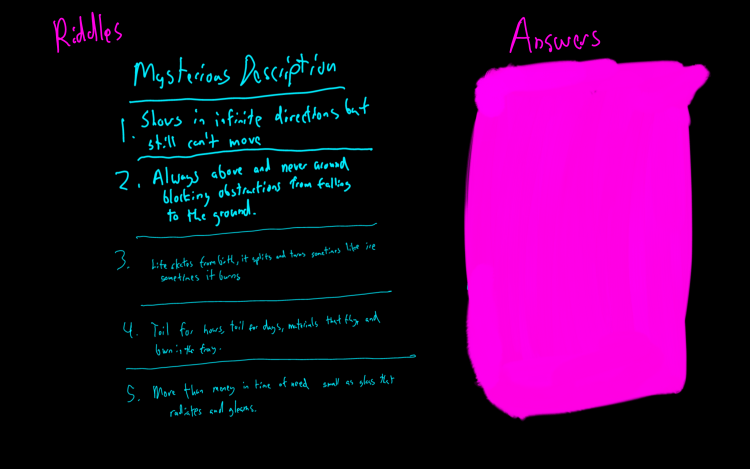 Riddles
Answers
Mysterious Description
1. Shows in infinite directions but
still can't move
2. Always above and never around
blocking obstructions from falling
to the ground.
3. from birth, it splits and turns sometimes like ice
sometimes it burns
4. Toil for hours, toil for days, materials that and
burn in the fray.
5. More than money in time of need small as glass that
radiates and gleams.